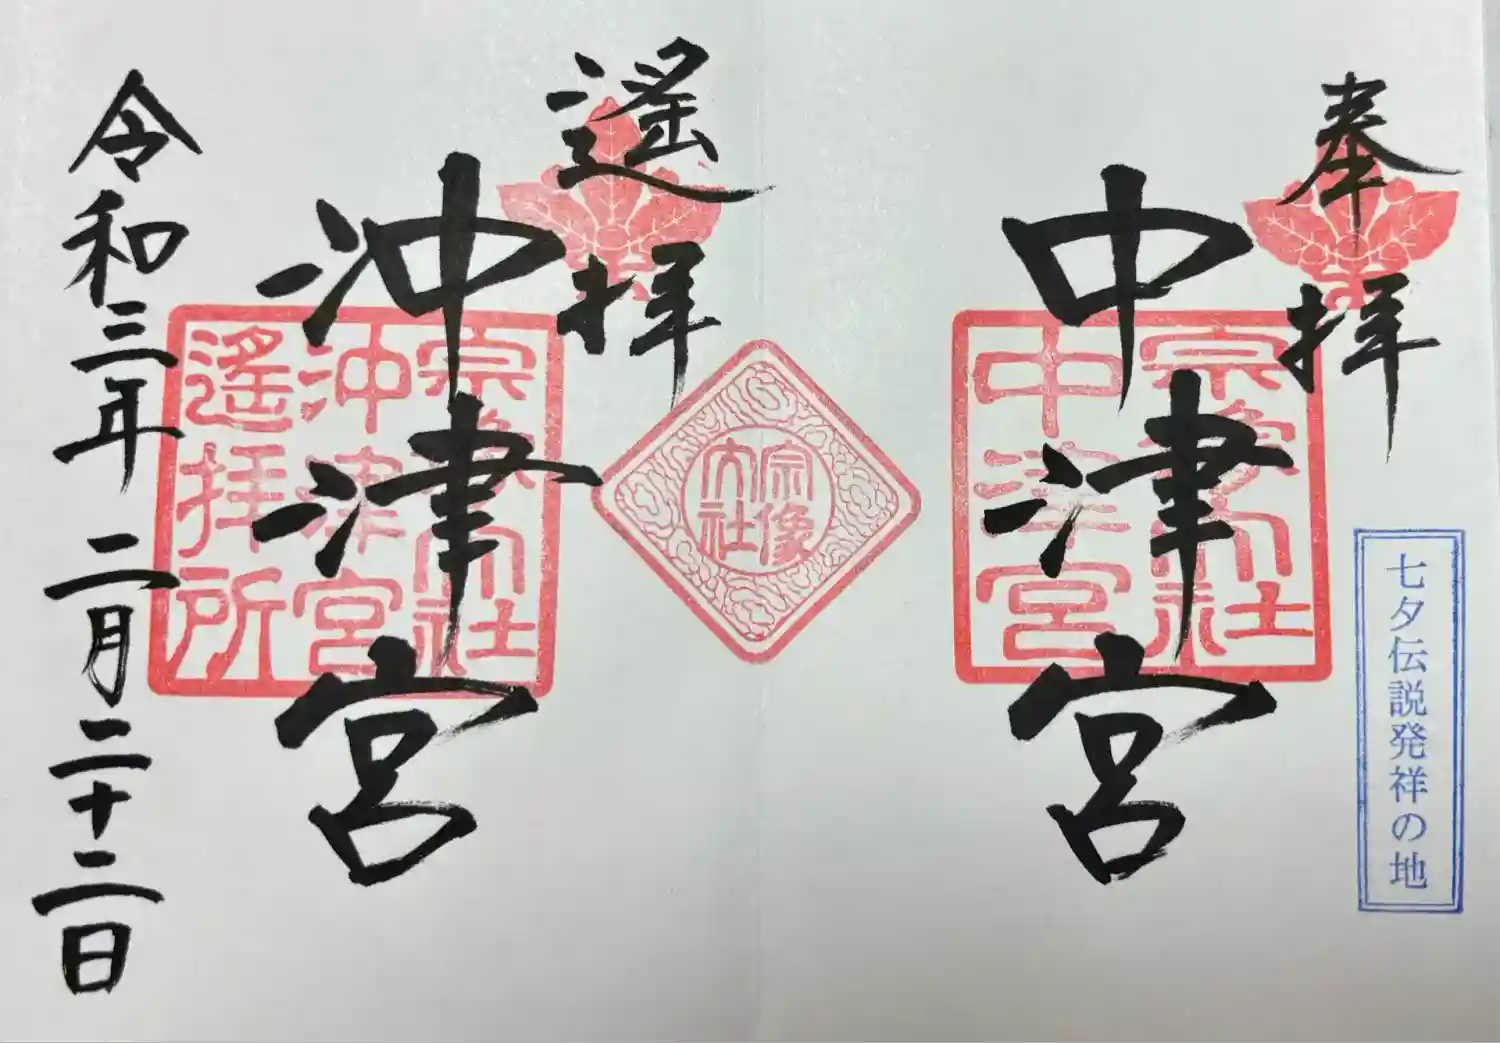 奉拝
中津宮
宗像大社
中津宮
七夕伝説発祥の地
宗像
大社
遙拝
沖津宮
宗像大社
沖津宮
遙拝所
令和三年二月二十二日